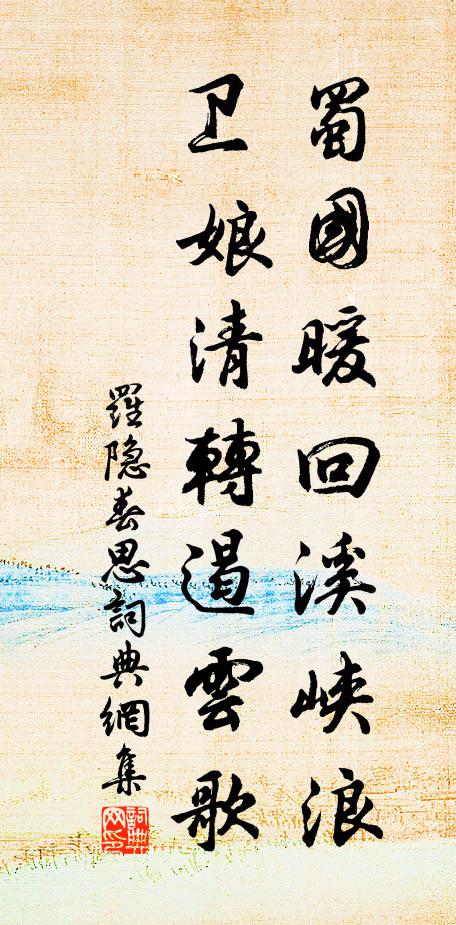 蜀國暖回溪峽浪
卫娘清轉遏雲歌
羅隐春思詞典網集
詞典网印